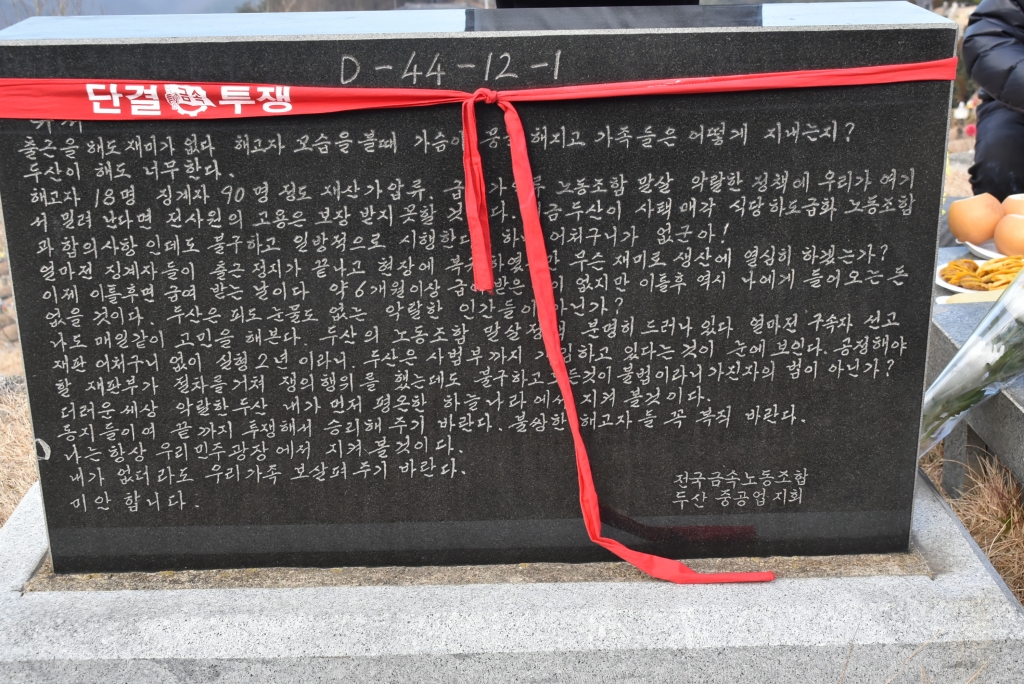 D-44-12-1
단결 금속 투쟁
출근을 해도 재미가 없다 해고자 모습을 볼때 가슴이 해지고 가족들은 어떻게 지내는지?
두산이 해도 너무한다.
해고자 18명 징계자 90명 정도 재산가압류. 노동조합 말살 악랄한 정책에 우리가 여기
서 밀려 난다면 전사원의 고용은 보장 받지 못할 것 두산이 사택매각 식당하도급화 노동조합
과 합의사항 인데도 불구하고 일방적으로 시행한다 어처구니가 없군아!
얼마전 징계자들이 출근 정지가 끝나고 현장에 무슨 재미로 생산에 열심히 하겠는가?
이제 이틀후면 급여 받는 날이다 약 6개월이상 급여 받은 없지만 이틀후 역시 나에게 들어오는 돈
없을 것이다 두산은 피도 눈물도 없는 악랄한 인간들이 아닌가?
나도 매일같이 고민을 해본다. 두산의 노동조합 말살 분명히 드러나 있다 얼마전 구속자 선고
재판 어처구니 없이 실형 2년 이라니. 두산은 사법부까지 하고 있다는 것이 눈에 보인다. 공정해야
할 재판부가 절차를 거쳐 쟁의행위를 했는데도 불구하고 모든것이 불법이라니 가진자의 법이 아닌가?
더러운세상 악랄한 두산 내가 먼저 평온한 하늘나라에서 지켜 볼것이다.
동지들이여 끝까지 투쟁해서 승리해 주기 바란다. 불쌍한 해고자들 꼭 복직 바란다.
나는 항상 우리민주광장에서 지켜 볼것이다.
내가 없더라도 우리가족 보살펴 주기 바란다.
미안 합니다.
전국금속노동조합
두산 중공업 지회